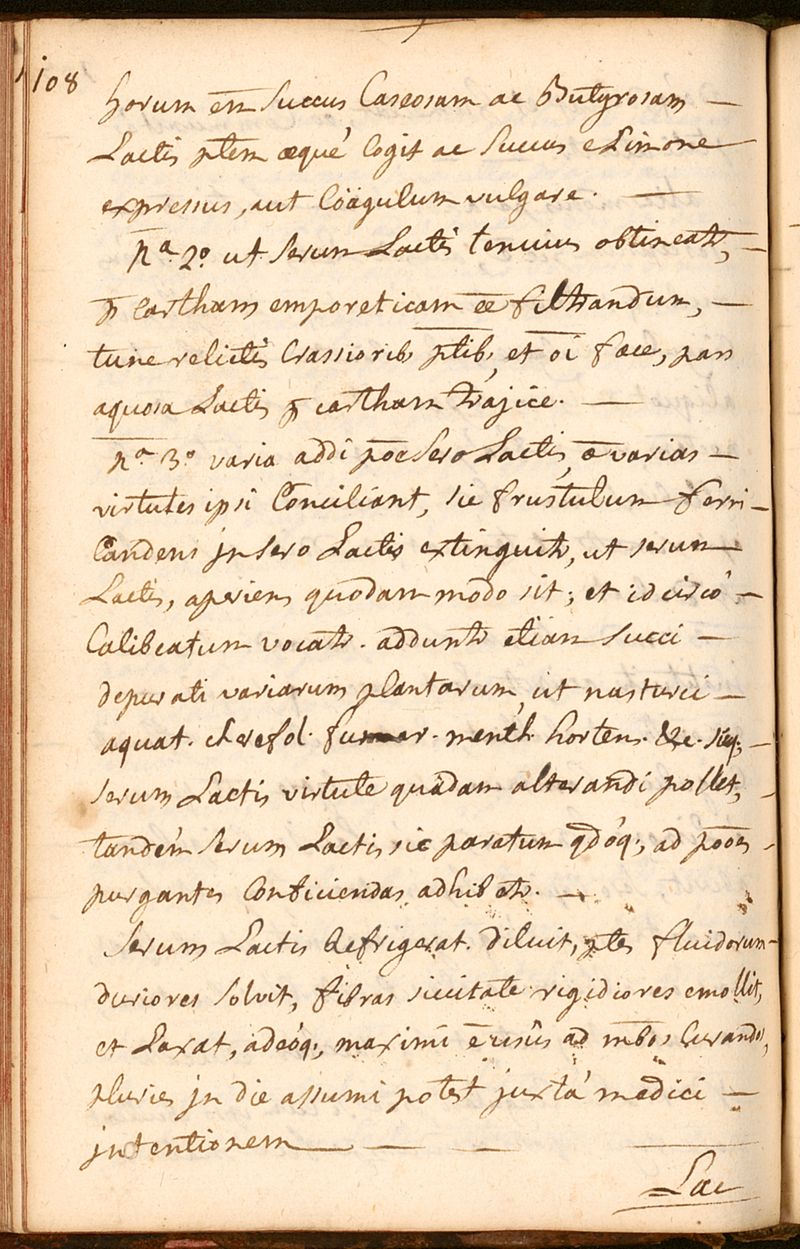 108
horum en͞ Succus Caseosam ac Butyrosam —
Lactis ptem æqué Cogit ac Succus e Limone
expressus, aut Coagulum vulgare. —
Nª. 2º. ut Serum Lactis tenuius obtineatr, —
p cartham emporeticam ēē filtrandum, —
tunc relictis Crassiorib ptib, et oi͞ fæce, pars
aquosa Lactis p cartham trajice. —
Nª. 3º. varia addi poss͞e Sero Lactis, ēē varias —
virtutes ipsi Conciliant, sic frustulum ferri —
Candens jn Sero Lactis extinguitr, ut serum
Lactis, aperiens quodam modo sit; et idcircó —
Calibeatum vocatr. adduntr etiam Succi —
depurati variarum plantarum, ut nasturci —
aquat. cherefol. fumar. menth. hortens. &c. sicq; —
serum Lactis virtute quadam alterandi pollet, —
tandém Serum Lactis sic paratum qdóq; ad poo͞es —
purgantes Conficiendas adhibetr. —
Serum Lactis Refrigerat. diluit, ptes fluidorum —
duriores solvit, fibras siccitate rigidiores emollit,
et Laxat, adeóq; maximi ē usûs ad mbos Curandos,
pluries jn die assumi potest juxtá medici —
jntentionem —
Lac